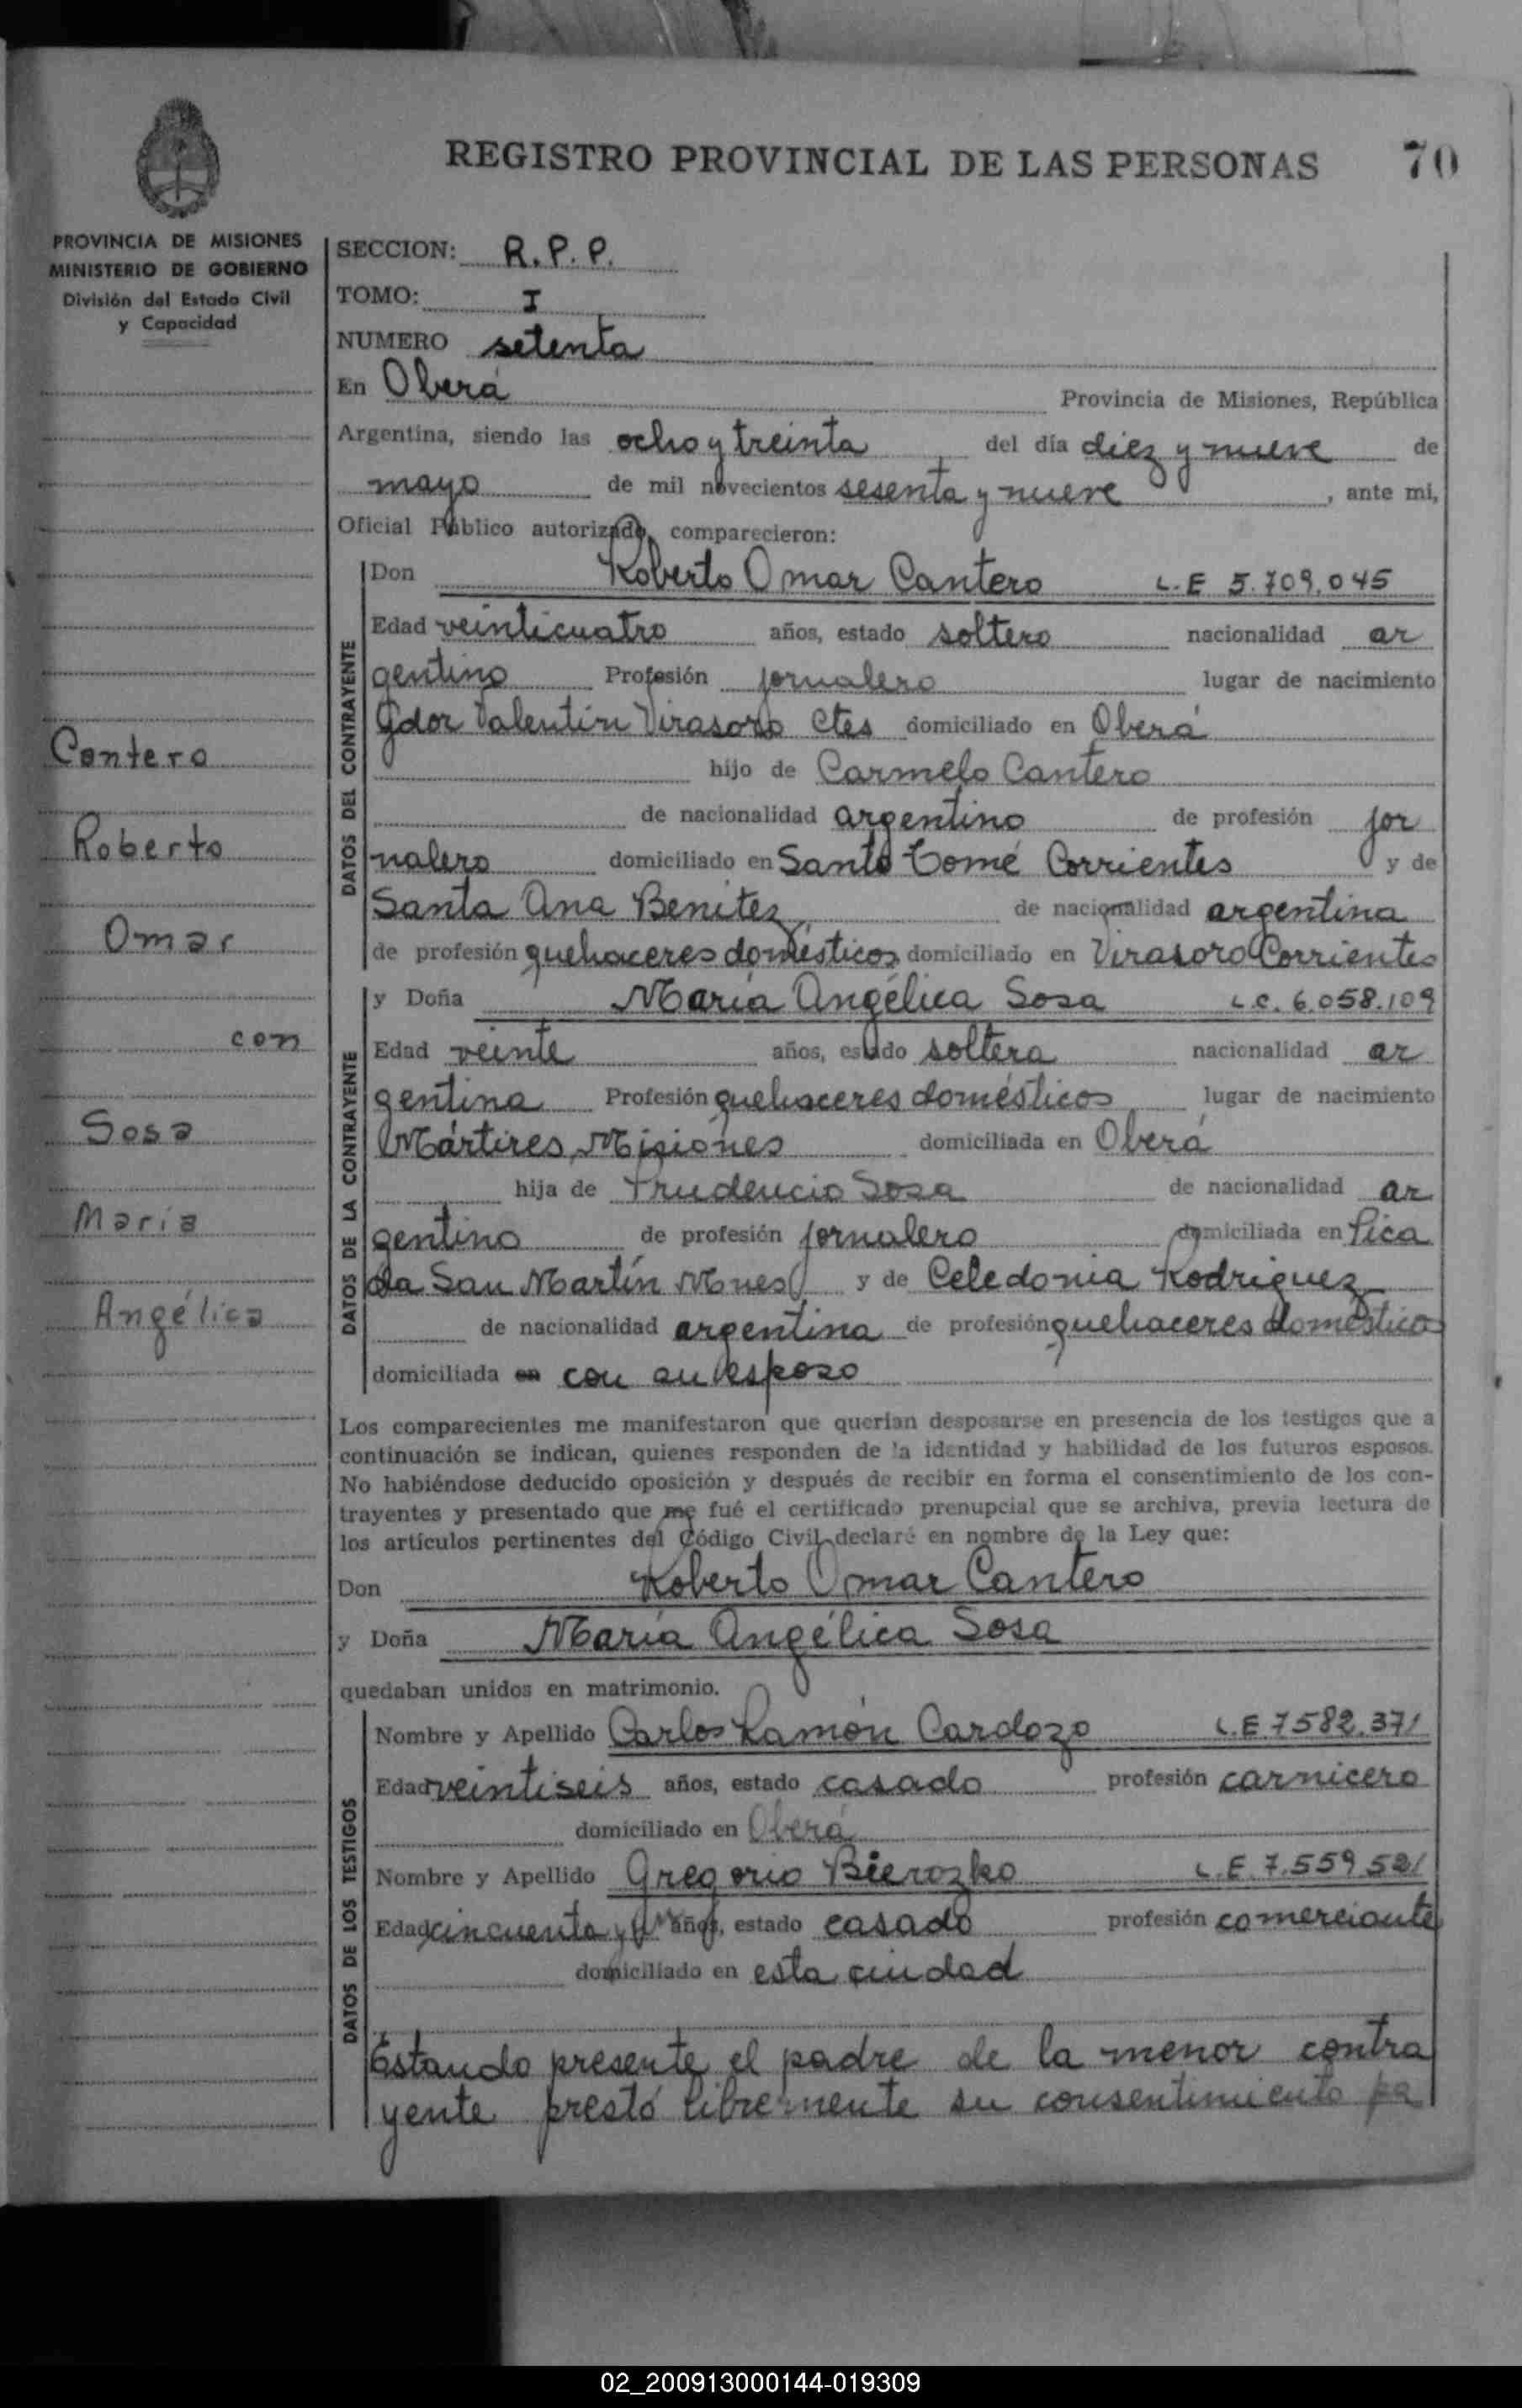 REGISTRO PROVINCIAL DE LAS PERSONAS 70
PROVINCIA DE MISIONES
MINISTERIO DE GOBIERNO
División del Estado Civil
y Capacidad
Cantero
Roberto
Omar
con
Sosa
María
Angélica
SECCION: R. P. P.
TOMO: I
NUMERO setenta
En Oberá Provincia de Misiones, República
Argentina, siendo las ocho y treinta del día diez y nueve de
mayo de mil novecientos sesenta y nueve, ante mi,
Oficial Público autorizado, comparecieron:
DATOS DEL CONTRAYENTE
Don Roberto Omar Cantero L.E 5.709.045
Edad veinticuatro años, estado soltero nacionalidad ar
gentino Profesión jornalero lugar de nacimiento
Gdor Valentin Virasoro Ctes domiciliado en Oberá
hijo de Carmelo Cantero
de nacionalidad argentino de profesión jor
nalero domiciliado en Santo Tomé Corrientes y de
Santa Ana Benitez de nacionalidad argentina
de profesión quehaceres domésticos domiciliado en Virasoro Corrientes
DATOS DE LA CONTRAYENTE
y Doña María Angélica Sosa L.C. 6.058.109
Edad veinte años, estado soltera nacionalidad ar
gentina Profesión quehaceres domésticos lugar de nacimiento
Mártires, Misiones domiciliada en Oberá
hija de Prudencio Sosa de nacionalidad ar
gentino de profesión jornalero domiciliada en Pica
da San Martín Mnes y de Celedonia Rodriguez
de nacionalidad argentina de profesión quehaceres domésticos
domiciliada en con su esposo
Los comparecientes me manifestaron que querían desposarse en presencia de los testigos que a
continuación se indican, quienes responden de la identidad y habilidad de los futuros esposos.
No habiéndose deducido oposición y después de recibir en forma el consentimiento de los con-
trayentes y presentado que me fué el certificado prenupcial que se archiva, previa lectura de
los artículos pertinentes del Código Civil declaré en nombre de la Ley que:
Don Roberto Omar Cantero
y Doña María Angélica Sosa
quedaban unidos en matrimonio.
DATOS DE LOS TESTIGOS
Nombre y Apellido Carlos Ramón Cardozo L.E. 7582.371
Edad veintiseis años, estado casado profesión carnicero
domiciliado en Oberá
Nombre y Apellido Gregorio Bierozko L.E. 7.559.521
Edad cincuenta y años, estado casado profesión comerciante
domiciliado en esta ciudad
Estando presente el padre de la menor contra
yente prestó libremente su consentimiento pa
02_200913000144-019309